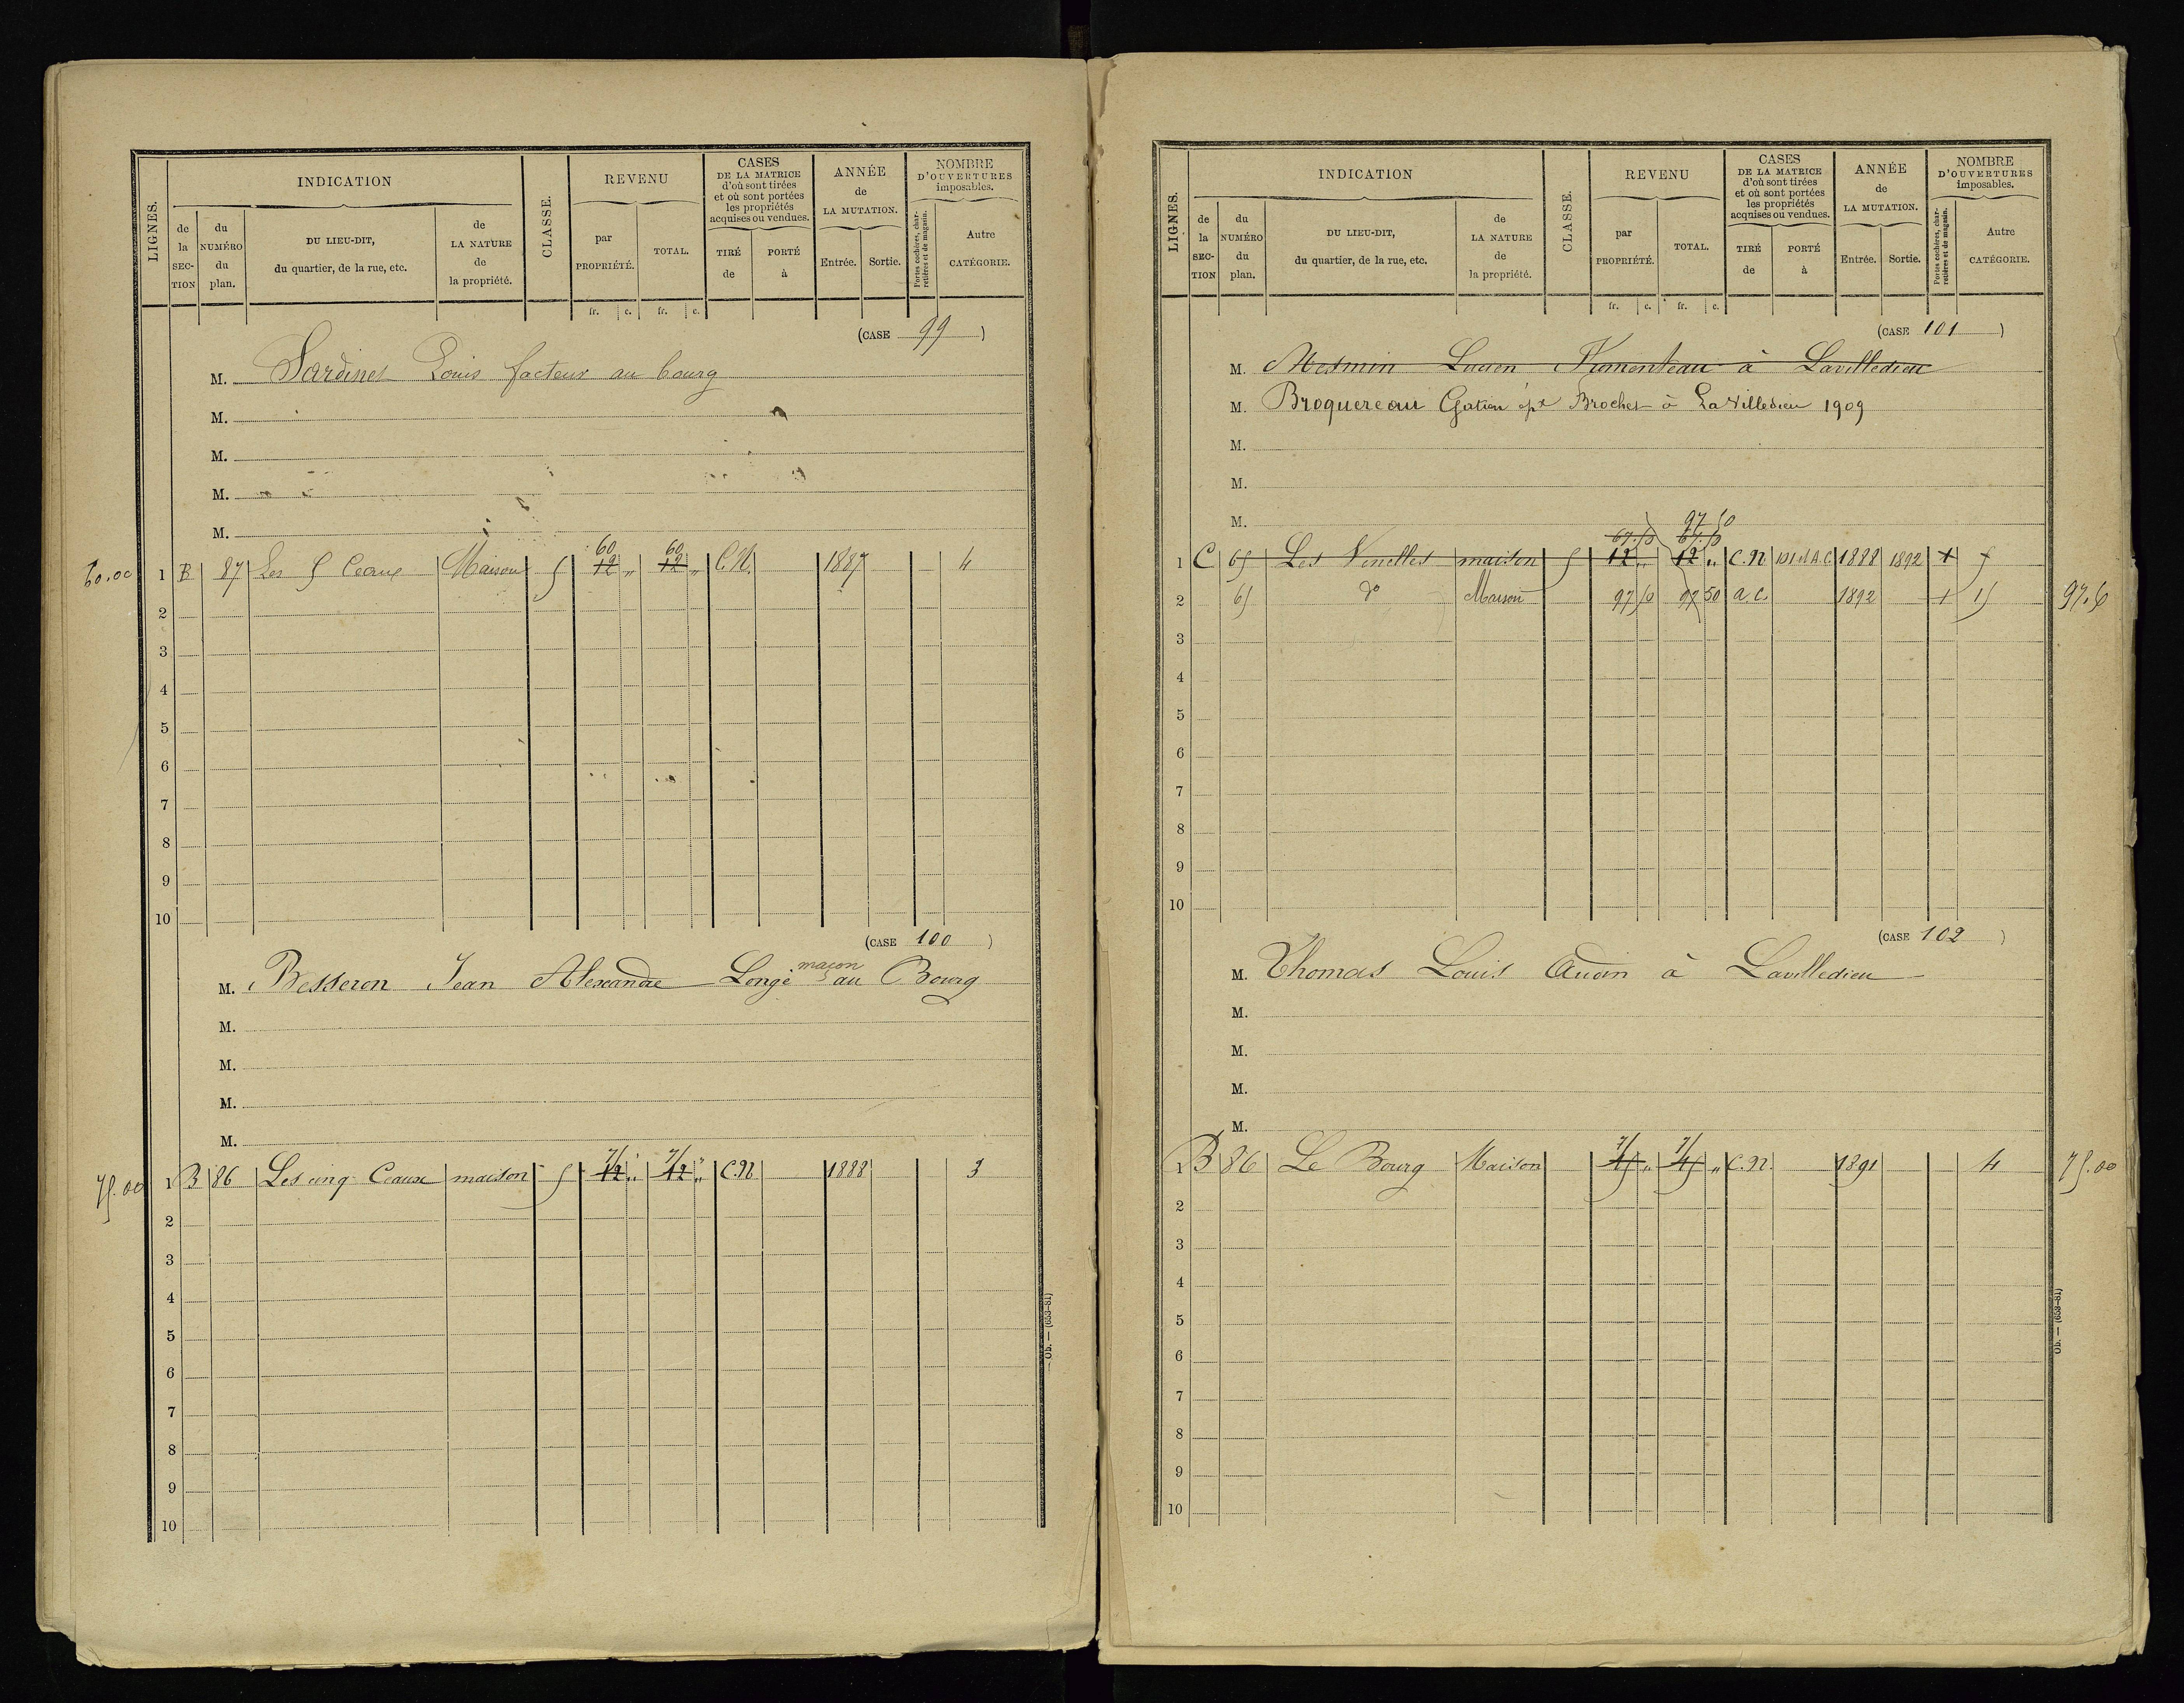 LIGNES. INDICATION CLASSE. REVENU CASES DE LA MATRICE d'où sont tirées et où sont portées les propriétés acquises ou vendues. ANNÉE de LA MUTATION. NOMBRE D'OUVERTURES imposables.
de la SECTION du NUMÉRO du plan. DU LIEU-DIT, du quartier, de la rue, etc. de LA NATURE de la propriété. par PROPRIÉTÉ. TOTAL. TIRÉ de PORTÉ à Entrée. Sortie. Portes cochères, charretières et de magasin. Autre CATÉGORIE.
fr. c. fr. c.
(CASE 99)
M. Sardinet Louis facteur au bourg
M.
M.
M.
M.
60 60
60.00 1 B 87 Les 5 Ceaux Maison 5 12 „ 12 „ C.N. 1887 4
2
3
4
5
6
7
8
9
10
(CASE 100)
maçon
M. Besseron Jean Alexandre Longé au Bourg
M.
M.
M.
M.
75 75
75.00 1 B 86 Les cinq Ceaux maison 5 12 „ 12 „ C.N. 1888 3
2
3
4
5
6
7
8
9
10
Ob. — (653-81)
LIGNES. INDICATION CLASSE. REVENU CASES DE LA MATRICE d'où sont tirées et où sont portées les propriétés acquises ou vendues. ANNÉE de LA MUTATION. NOMBRE D'OUVERTURES imposables.
de la SECTION du NUMÉRO du plan. DU LIEU-DIT, du quartier, de la rue, etc. de LA NATURE de la propriété. par PROPRIÉTÉ. TOTAL. TIRÉ de PORTÉ à Entrée. Sortie. Portes cochères, charretières et de magasin. Autre CATÉGORIE.
fr. c. fr. c.
(CASE 101)
M. Mesmin Lucien Fumenteau à Lavilledieu
M. Broquereau Gatien épx Brochet à La Villedieu 1909
M.
M.
M.
97 50
67.50 67.50
1 C 65 Les Venelles maison 5 12 „ 12 „ C.N. A.C. 1888 1892 1 5
2 65 do Maison 97 50 97 50 a.c. 1892 1 15 97.5
3
4
5
6
7
8
9
10
(CASE 102)
M. Thomas Louis Audin à Lavilledieu
M.
M.
M.
M.
75 75
1 B 86 Le Bourg Maison 45 „ 45 „ C.N. 1891 4 75.00
2
3
4
5
6
7
8
9
10
Ob. — (653-81)